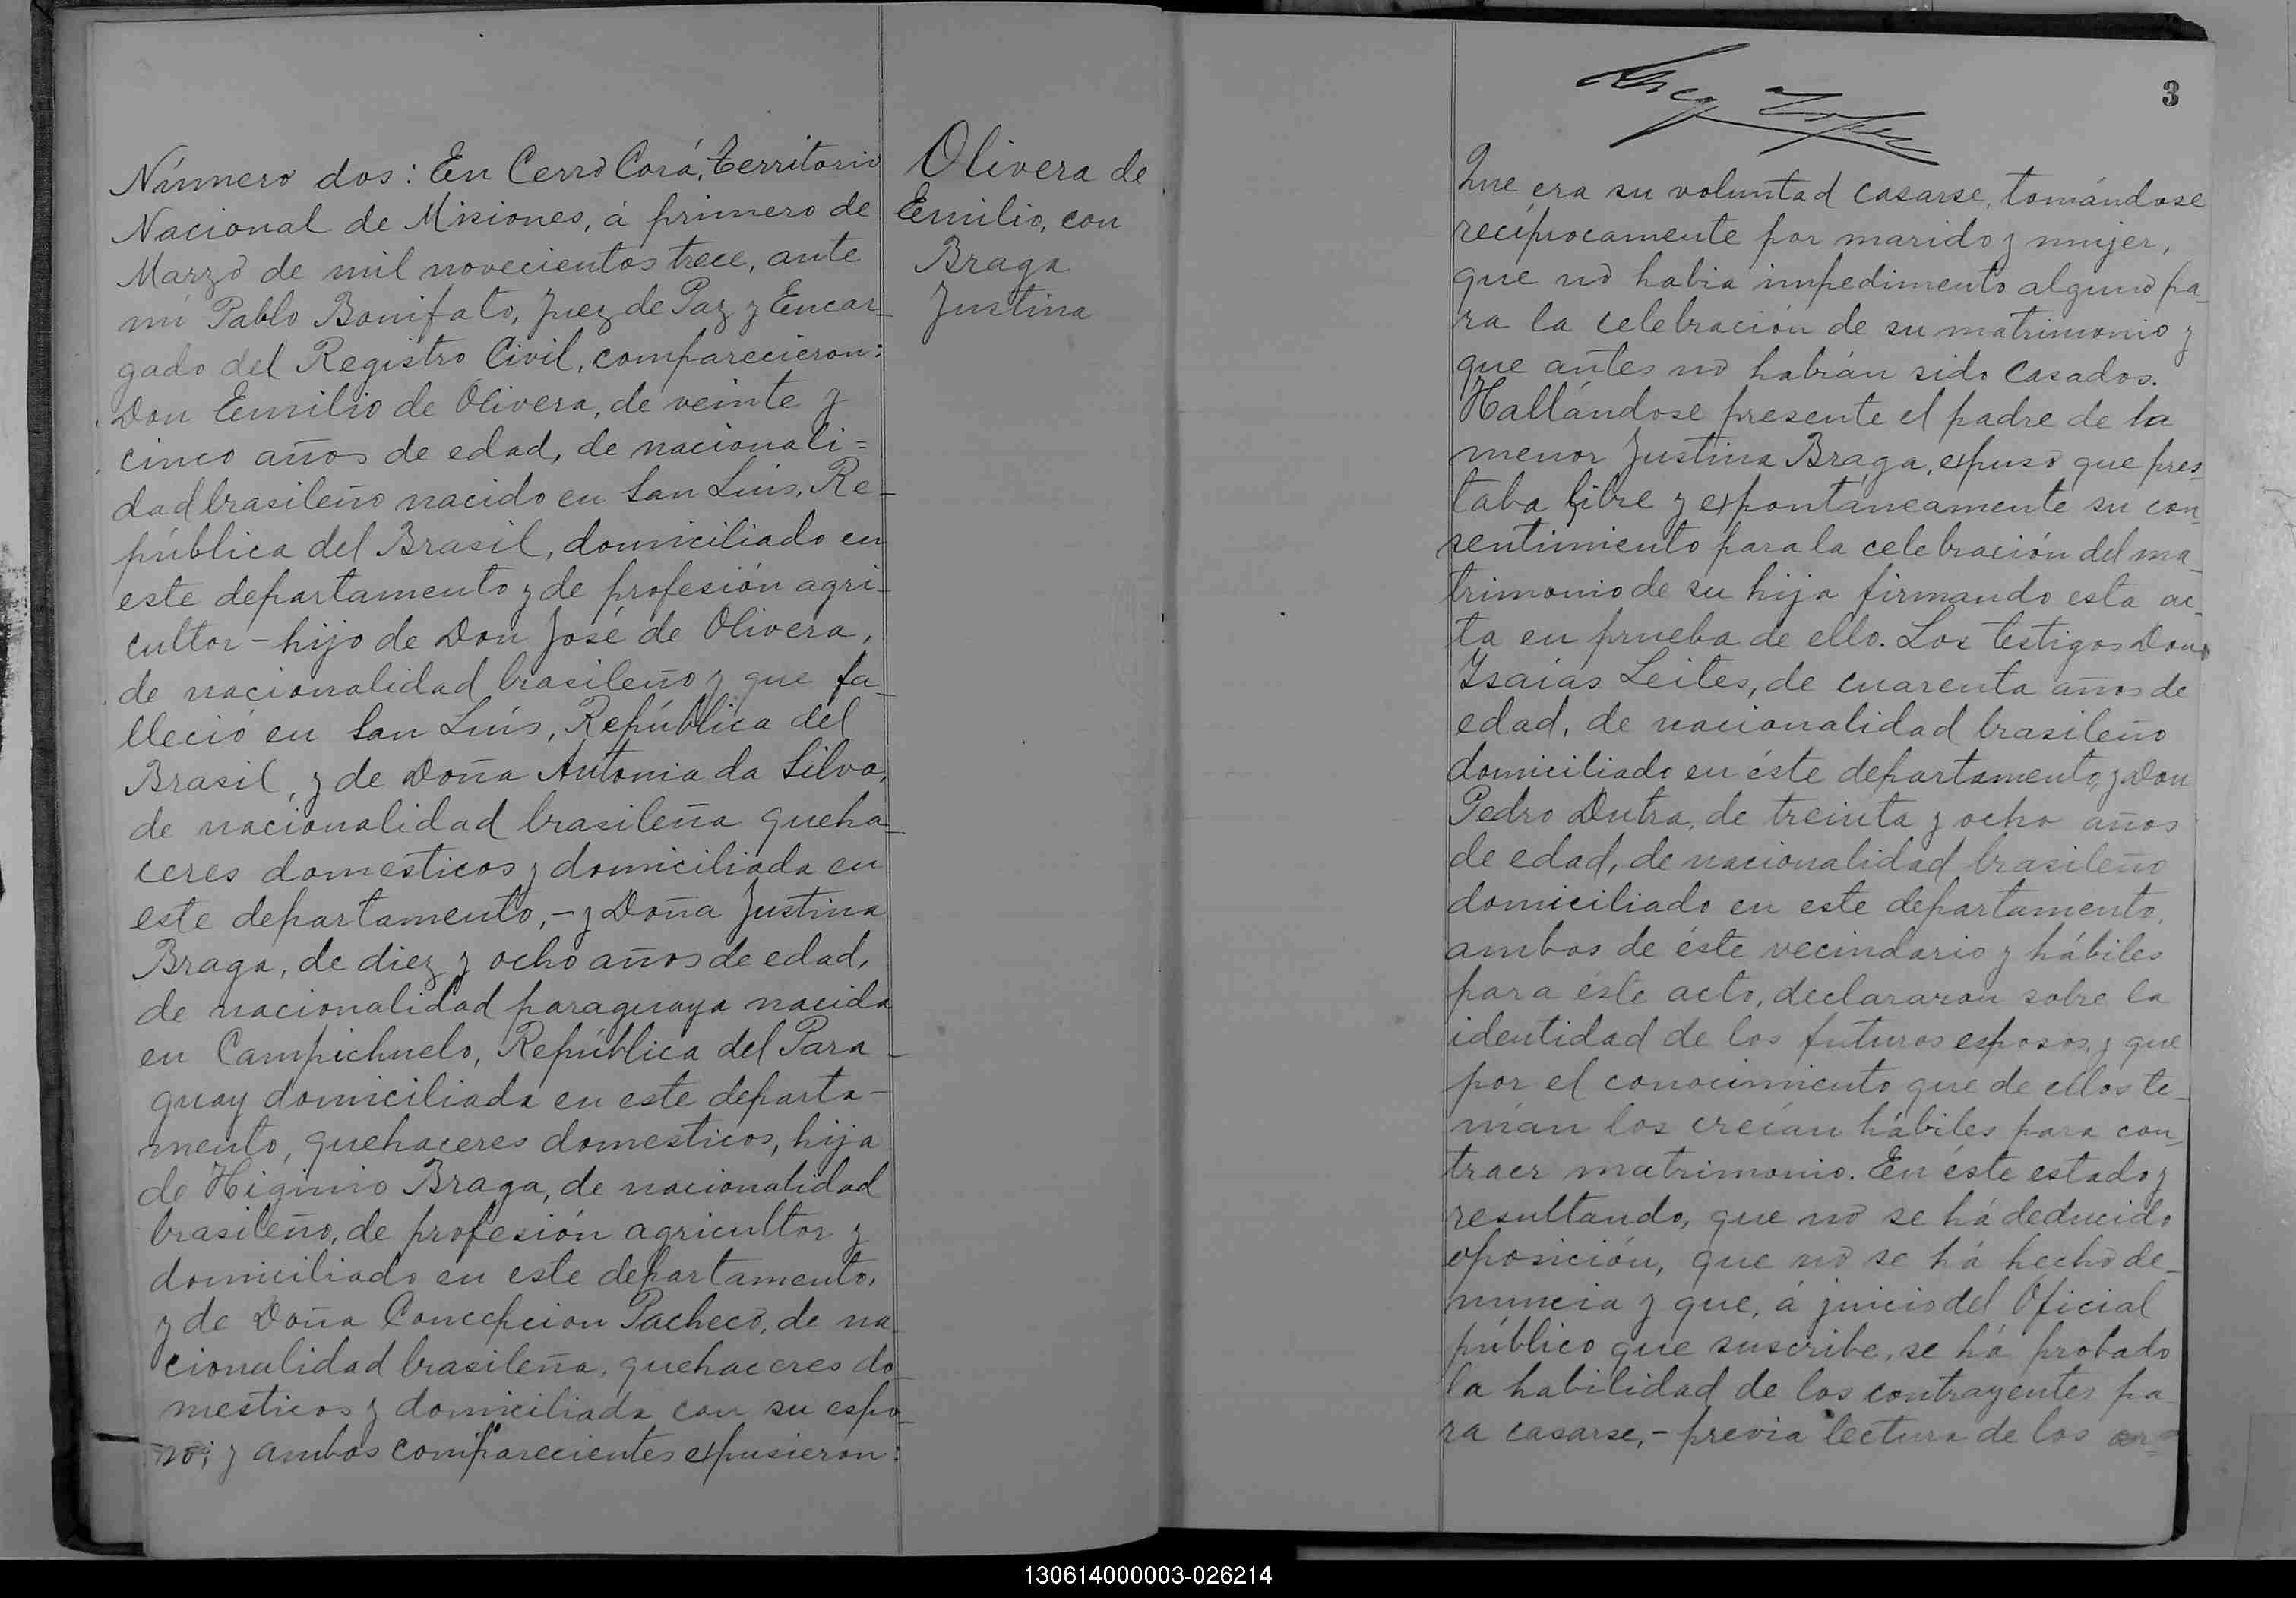 Número dos: En Cerro Corá, Territorio
Nacional de Misiones, á primero de
Marzo de mil novecientos trece, ante
mi Pablo Bonifato, Juez de Paz y Encar-
gado del Registro Civil, comparecieron:
Don Emilio de Olivera, de veinte y
cinco años de edad, de nacionali=
dad brasileño nacido en San Luis, Re-
pública del Brasil, domiciliado en
este departamento y de profesión agri-
cultor - hijo de Don José de Olivera,
de nacionalidad brasileño y que fa-
lleció en San Luís, República del
Brasil, y de Doña Antonia da Silva,
de nacionalidad brasileña queha-
ceres domesticos y domiciliada en
este departamento, - y Doña Justina
Braga, de diez y ocho años de edad,
de nacionalidad paraguaya nacida
en Campichuelo, República del Para-
guay domiciliada en este departa-
mento, quehaceres domesticos, hija
de Higinio Braga, de nacionalidad
brasileño, de profesión agricultor y
domiciliado en este departamento,
y de Doña Concepcion Pacheco, de na-
cionalidad brasileña, quehaceres do-
mesticos y domiciliada con su espo-
so; y ambos comparecientes expusieron:
Olivera de
Emilio, con
Braga
Justina
3
Que era su voluntad casarse, tomándose
recíprocamente por marido y mujer,
que no habia impedimento alguno pa-
ra la celebración de su matrimonio y
que antes no habían sido casados.
Hallándose presente el padre de la
menor Justina Braga, expuso que pres-
taba libre y expontáneamente su con-
sentimiento para la celebración del ma-
trimonio de su hija firmando esta ac-
ta en prueba de ello. Los testigos Don
Isaías Leites, de cuarenta años de
edad, de nacionalidad brasileño
domiciliado en éste departamento, y Don
Pedro Dutra, de treinta y ocho años
de edad, de nacionalidad brasileño
domiciliado en este departamento,
ambos de éste vecindario y hábiles
para éste acto, declararon sobre la
identidad de los futuros esposos, y que
por el conocimiento que de ellos te-
nían los creían hábiles para con-
traer matrimonio. En éste estado y
resultando, que no se há deducido
oposición, que no se há hecho de-
nuncia y que, á juicio del Oficial
público que suscribe, se há probado
la habilidad de los contrayentes pa-
ra casarse, - previa lectura de los ar-
130614000003-026214